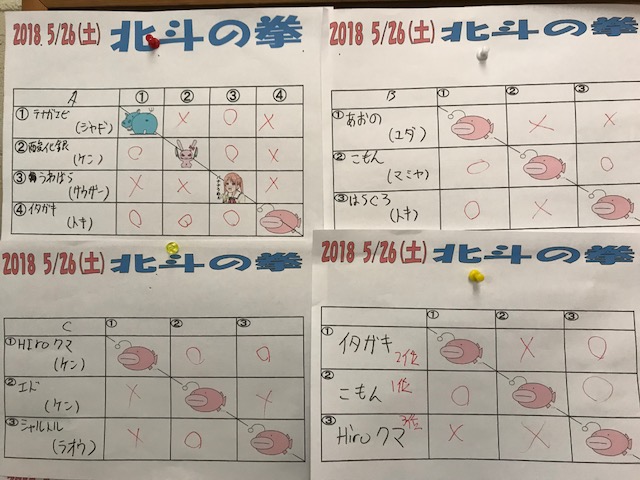 2018 5/26(土) 北斗の拳
A ① ② ③ ④
①テナガエビ × ○ ×
(ジャギ)
②酸化銀 ○ ○ ×
(ケン)
③うわばら × × ×
(サウザー)
④イタガキ ○ ○ ○
(トキ)
2018 5/26(土) 北斗の拳
B ① ② ③
①あおの × ×
(ユダ)
②こもん ○ ○
(マミヤ)
③はらぐろ ○ ×
(トキ)
2018 5/26(土) 北斗の拳
C ① ② ③
①HIROクマ ○ ○
(ケン)
②エド × ×
(ケン)
③シャルトル × ○
(ラオウ)
2018 5/26(土) 北斗の拳
① ② ③
①イタガキ 2位 × ○
②こもん 1位 ○ ○
③Hiroクマ 3位 × ×
2018